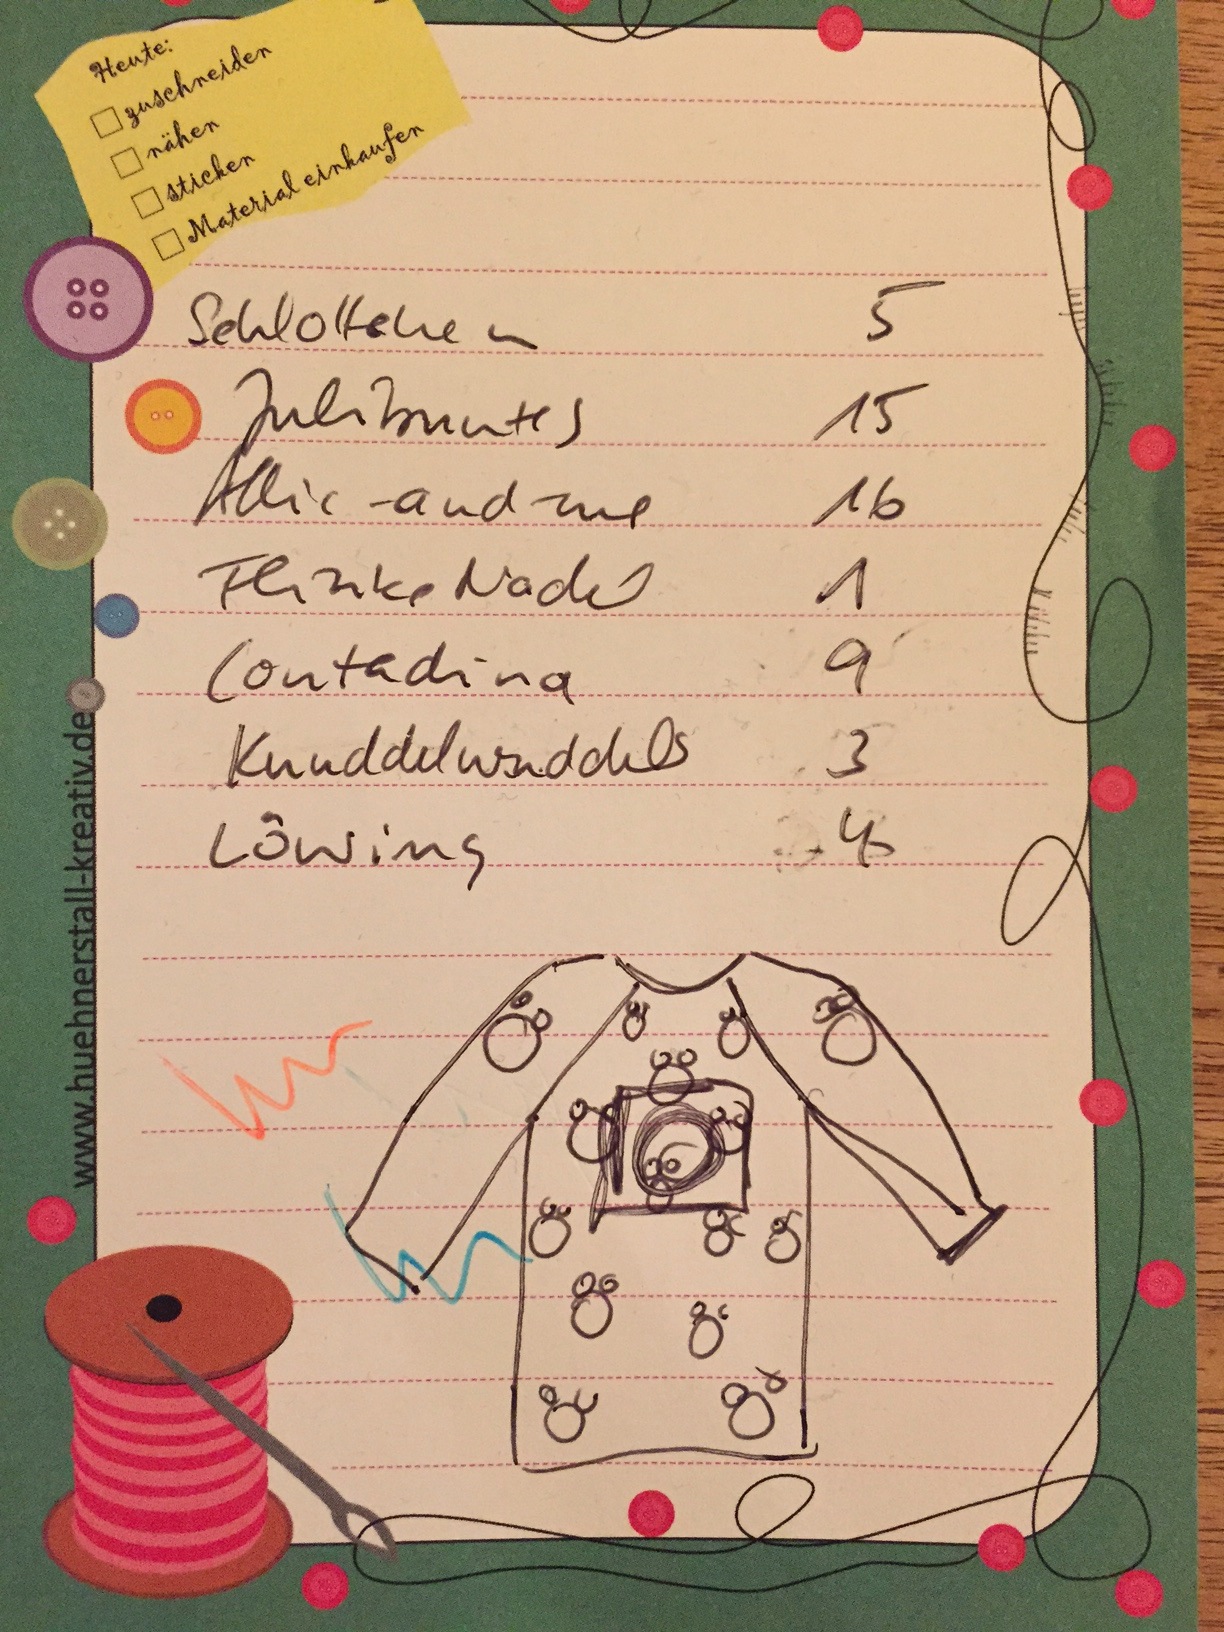 Heute:
zuschneiden
nähen
sticken
Material einkaufen
Schlottchen 5
Julibuntes 15
Allie-and-me 16
Flinke Nadel 1
Contadina 9
Knuddelwuddels 3
Löwing 4
www.huehnerstall-kreativ.de